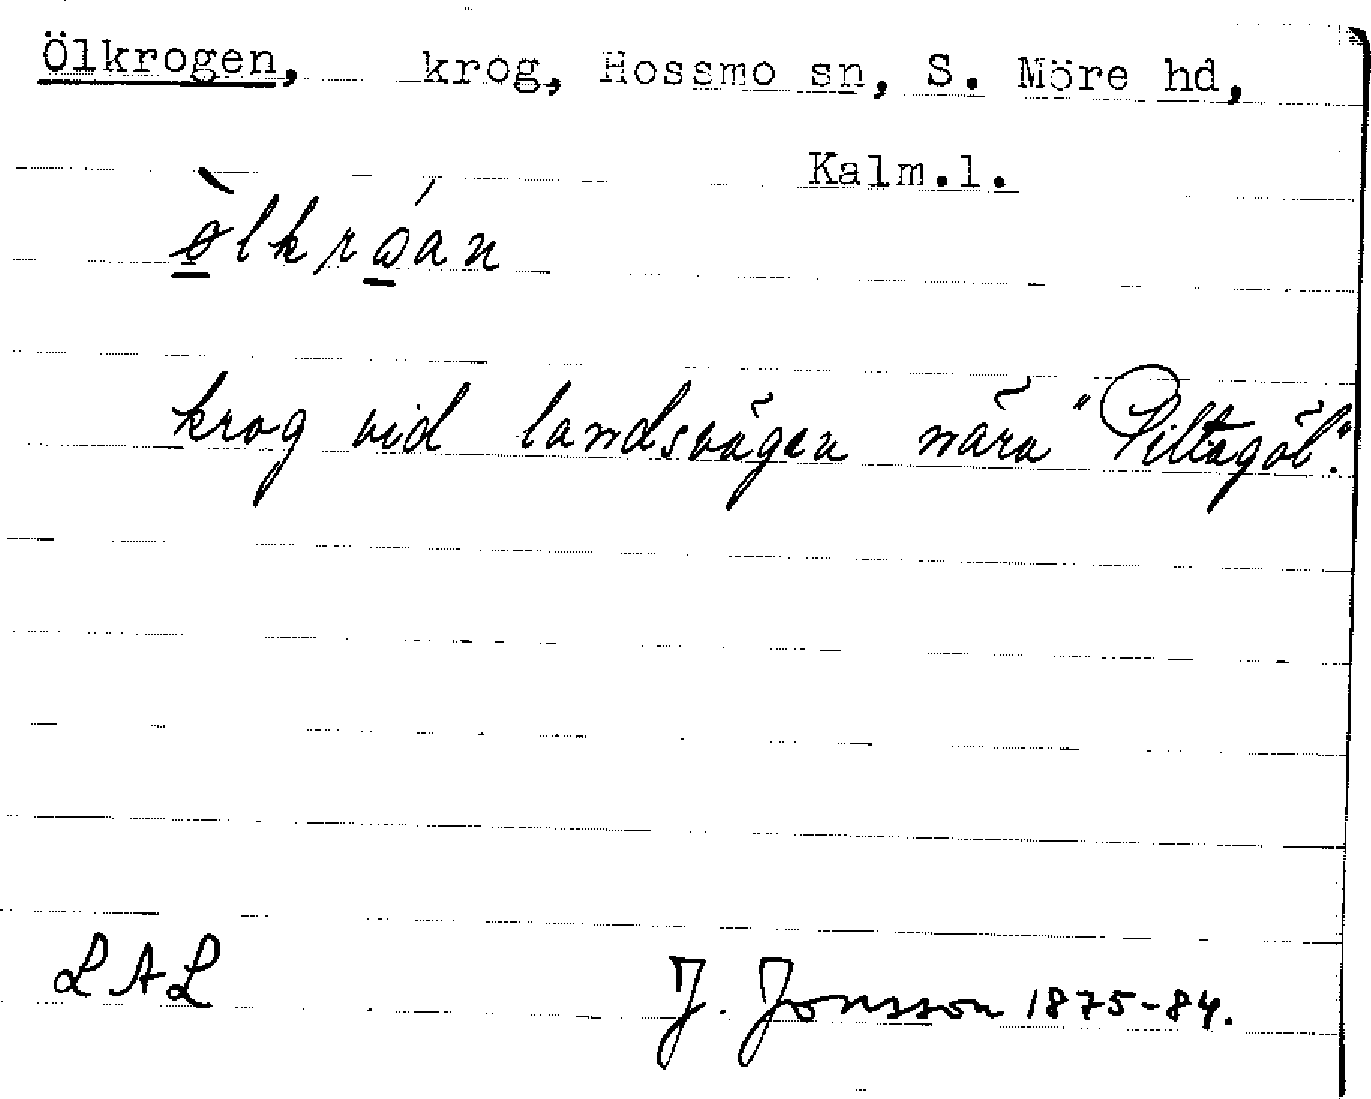 Ölkrogen, krog, Hossmo sn, S. Möre hd,
Kalm.l.
ø̀lkrǿan
krog vid landsvägen nära "Piltagöl".
LAL
J. Jonsson 1875-84.